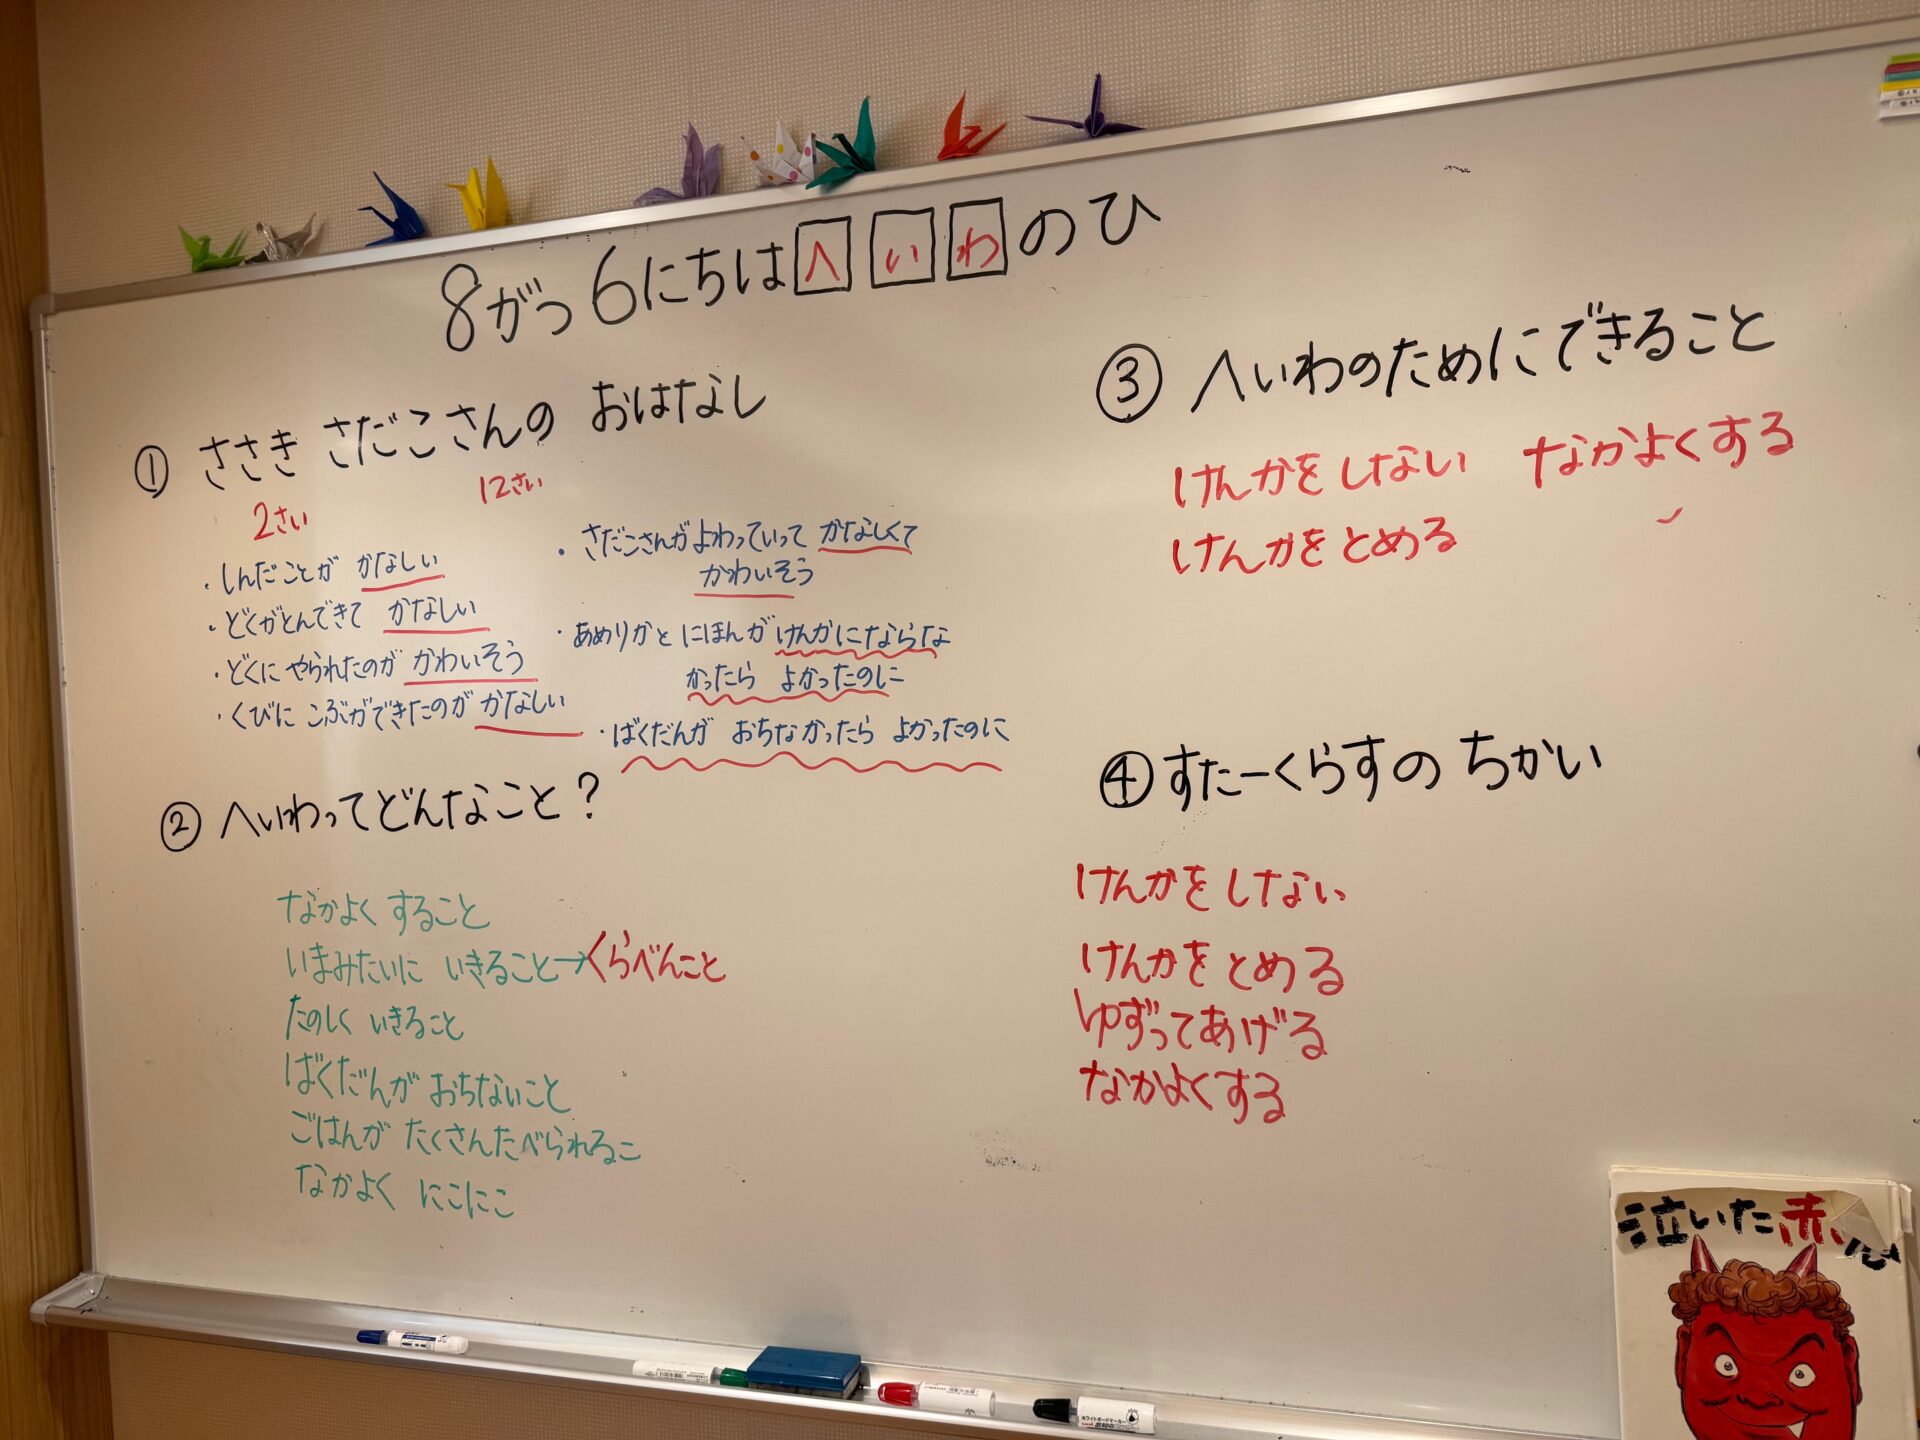 8がつ6にちはへいわのひ
① ささき さだこさんの おはなし
2さい 12さい
・しんだことが かなしい
・どくがとんできて かなしい
・どくに やられたのが かわいそう
・くびに こぶができたのが かなしい
・さだこさんがよわっていって かなしくて
かわいそう
・あめりかと にほんが けんかにならな
かったら よかったのに
・ばくだんが おちなかったら よかったのに
② へいわってどんなこと?
なかよく すること
いまみたいに いきること→くらべんこと
たのしく いきること
ばくだんが おちないこと
ごはんが たくさんたべられるこ
なかよく にこにこ
③ へいわのためにできること
けんかをしない なかよくする
けんかをとめる
④ すたーくらすの ちかい
けんかをしない
けんかをとめる
ゆずってあげる
なかよくする
泣いた赤
ホワイトボードマーカー